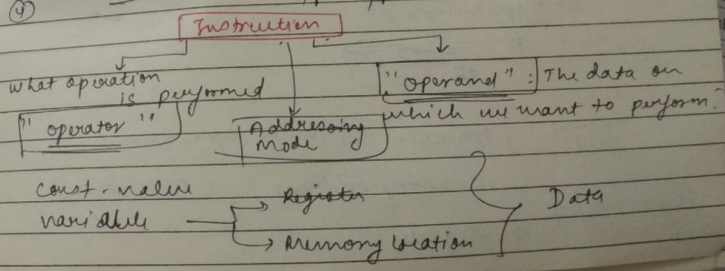 4
Instruction
what operation
is performed
"operator"
Addressing
Mode
"Operand" : The data on
which we want to perform.
const. value
variable
Register
Memory location
Data